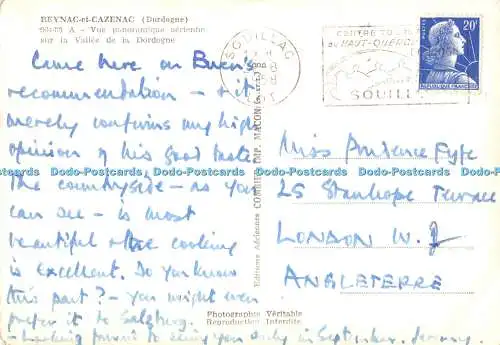 BEYNAC-et-CAZENAC (Dordogne)
A - Vue panoramique aérienne
sur la Vallée de la Dordogne
Came here on Buren's
recommendation - & it
merely confirms my high
opinion of his good taste.
The countryside - as you
can see - is most
beautiful & the cooking
is excellent. Do you know
this part? - You might even
prefer it to Salzburg.
- Looking forward to seeing you early in September. Jeremy.
Editions Aériennes COMBIER IMP. MACON
Photographie Véritable
Reproduction Interdite
SOUILLAC
LOT
CENTRE TOU
du HAUT-QUERCY
SOUILL
20F
POSTES
REPUBLIQUE FRANÇAISE
Miss Prudence Fyfe
25 Stanhope Terrace
LONDON W.2
ANGLETERRE
Dodo-Postcards Dodo-Postcards Dodo-Postcards Dodo-Postcards Dodo-Postcards